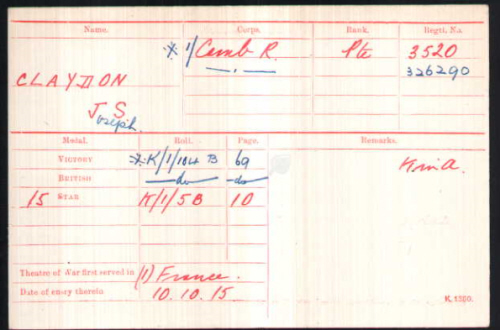 Name. Corps. Rank. Regtl. No.
* 1/Camb R. Pte 3520
— " — 326290
CLAYDON
J S
Joseph.
Medal. Roll. Page. Remarks.
VICTORY *K/1/104 B 69 K in A.
BRITISH —do— —do—
15 STAR K/1/5B 10
Theatre of War first served in (1) France.
Date of entry therein 10.10.15.
K. 1380.